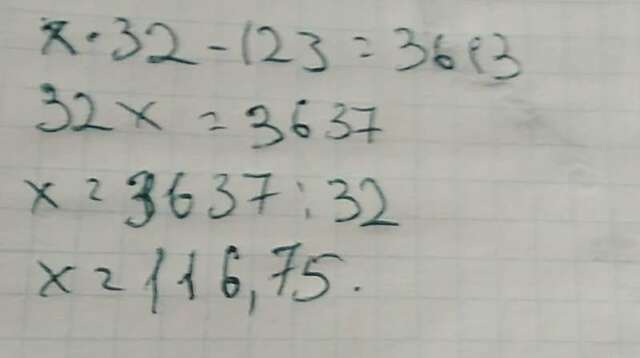 x·32-123=3613
32x=3637
x=3637:32
x=116,75.